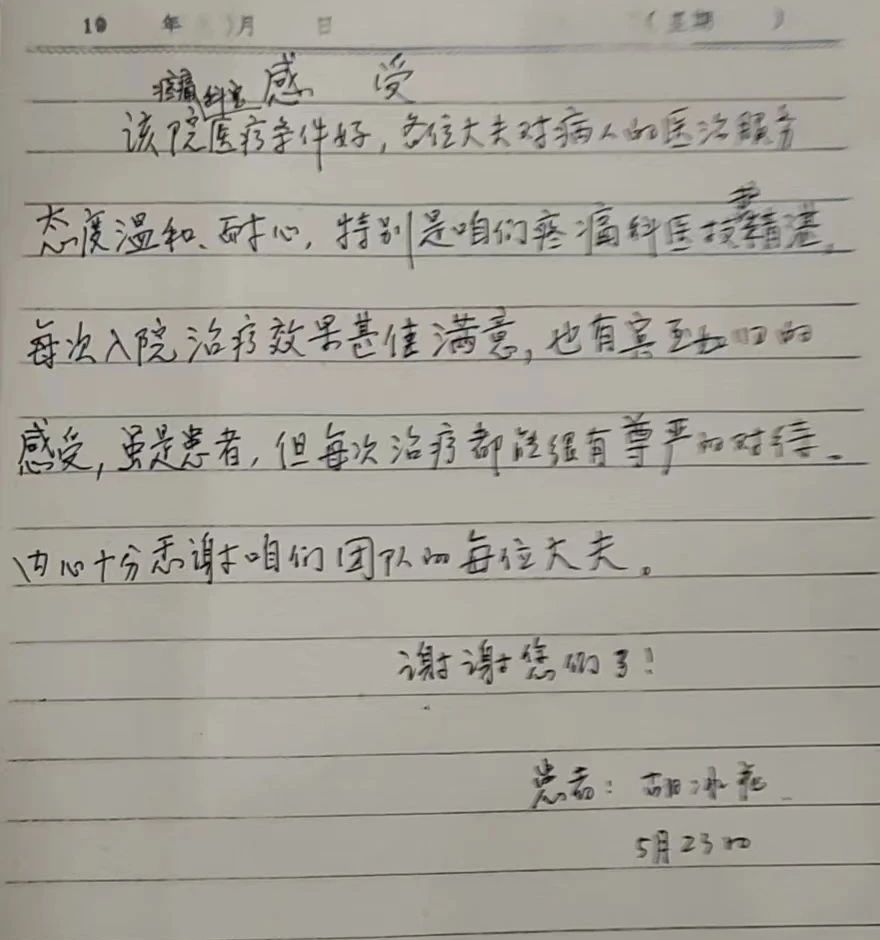 19 年 月 日 (星期 )
感 受
疼痛科室
该院医疗条件好,各位大夫对病人的医治服务
态度温和、耐心,特别是咱们疼痛科医技精湛,
每次入院治疗效果甚佳满意,也有宾至如归的
感受,虽是患者,但每次治疗都能很有尊严的对待。
内心十分感谢咱们团队的每位大夫。
谢谢您们了!
患者:胡冰
5月23日